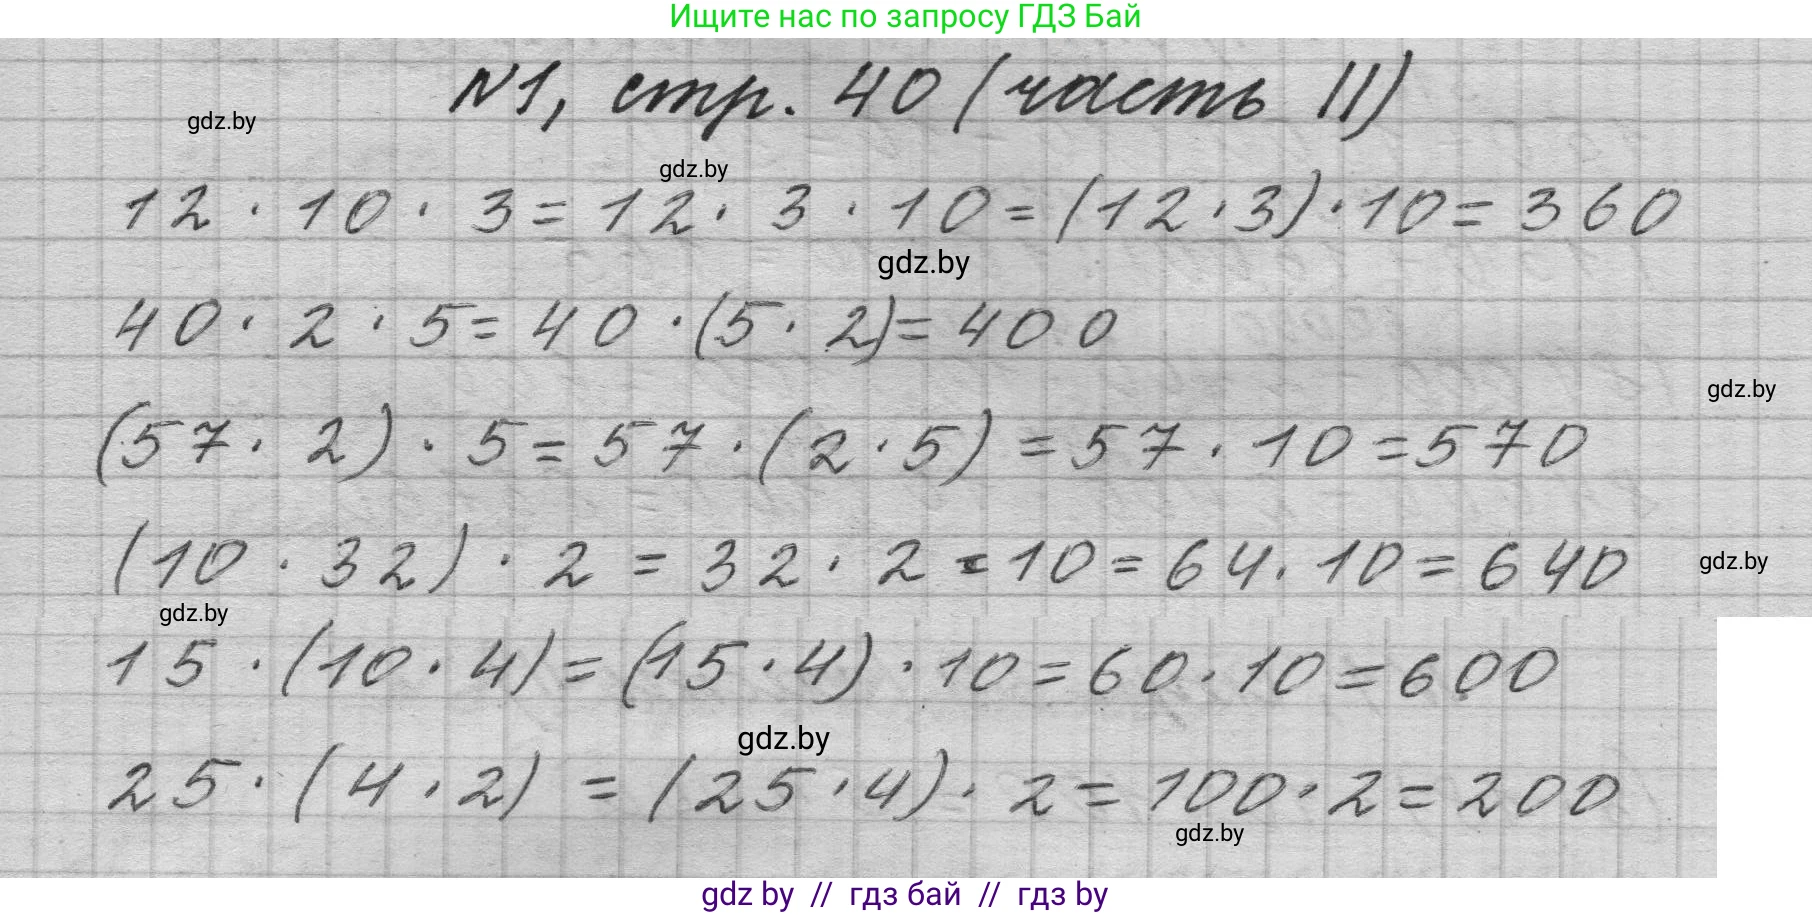 Ищите нас по запросу ГДЗ Бай
№1, стр. 40 (часть II)
gdz.by
gdz.by
12 · 10 · 3 = 12 · 3 · 10 = (12 · 3) · 10 = 360
gdz.by
40 · 2 · 5 = 40 · (5 · 2) = 400
gdz.by
(57 · 2) · 5 = 57 · (2 · 5) = 57 · 10 = 570
(10 · 32) · 2 = 32 · 2 · 10 = 64 · 10 = 640
gdz.by
gdz.by
15 · (10 · 4) = (15 · 4) · 10 = 60 · 10 = 600
gdz.by
25 · (4 · 2) = (25 · 4) · 2 = 100 · 2 = 200
gdz.by
gdz by // гдз бай // гдз by